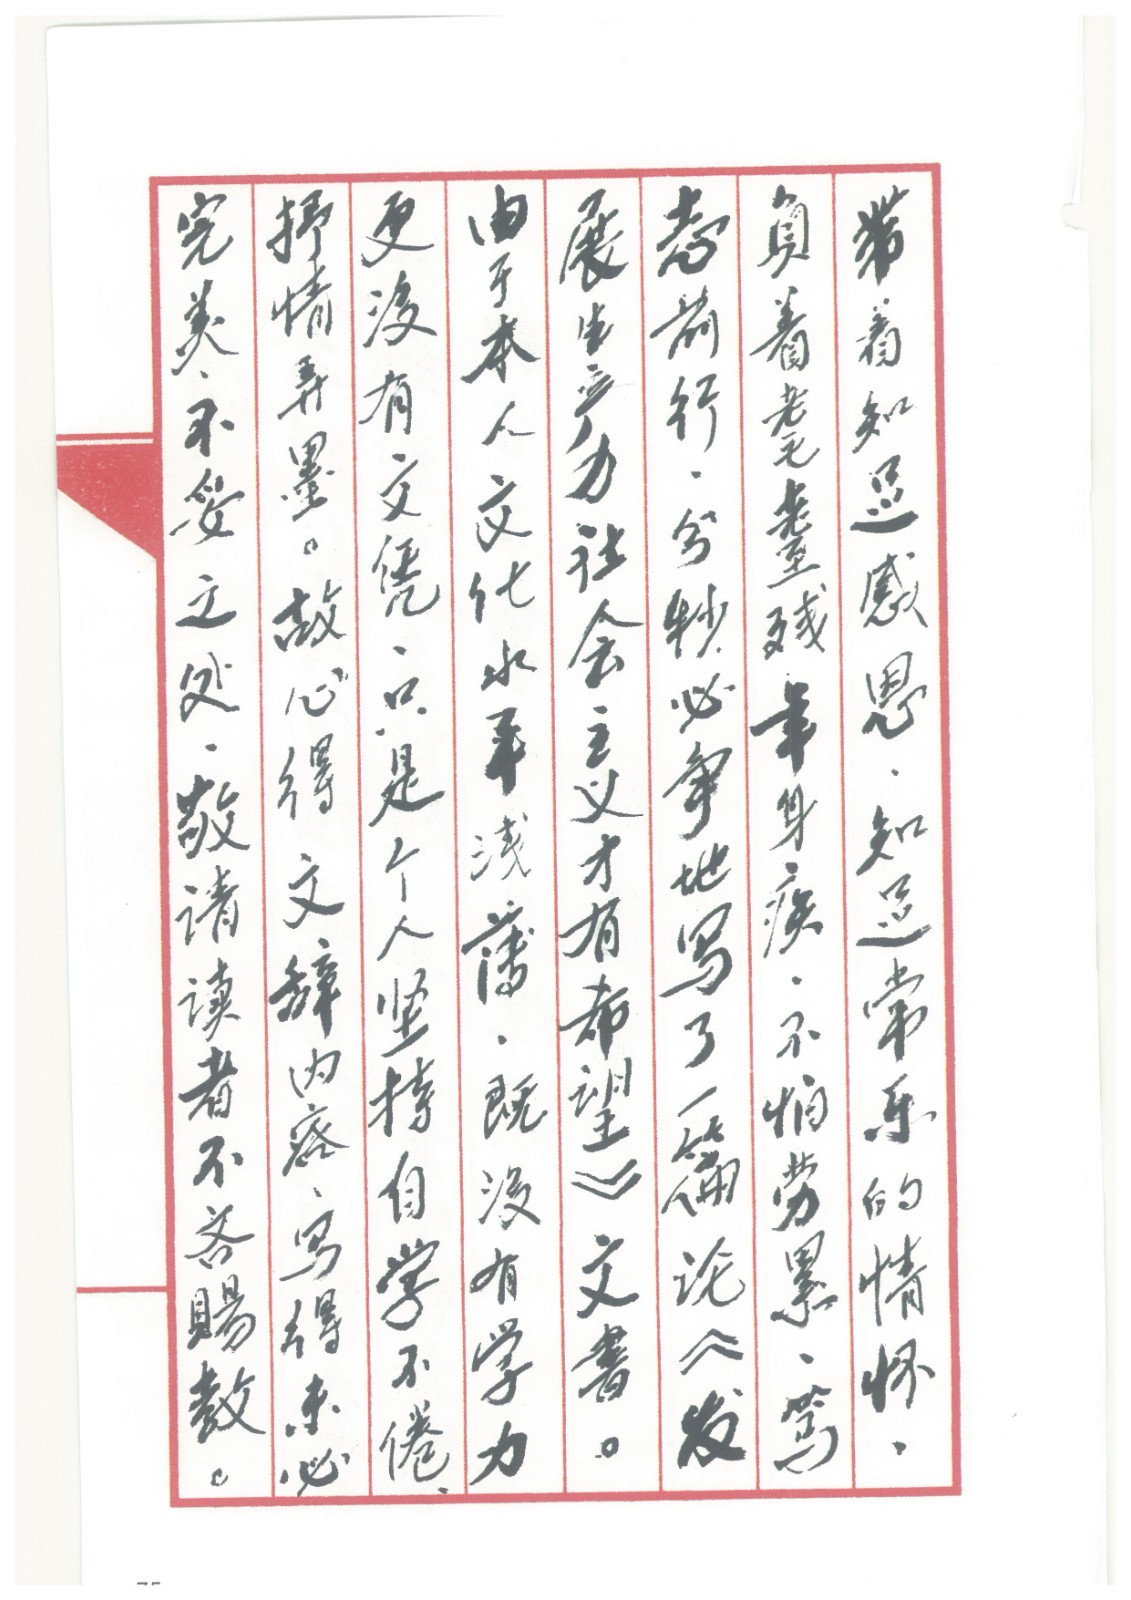 带着知足感恩、知足常乐的情怀、
负着耄耋残年身疾、不怕劳累、笃
志前行、分秒必争地写了一篇论《发
展生产力社会主义才有希望》文书。
由于本人文化水平浅薄、既没有学力
更没有文凭、只是个人坚持自学不倦、
抒情弄墨。故心得文辞内容、写得未必
完美、不妥之处、敬请读者不吝赐教。